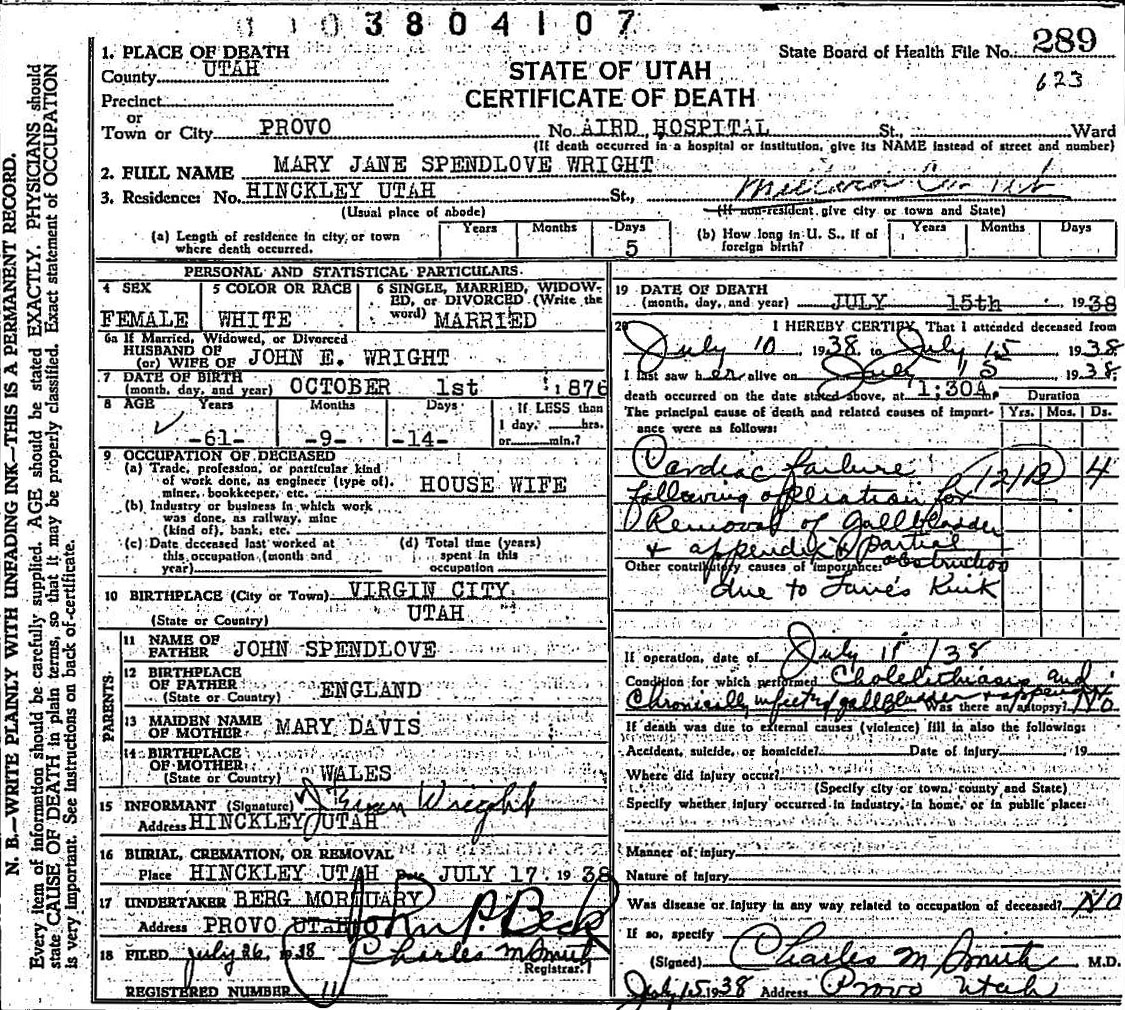 3804107
State Board of Health File No. 289
623
1. PLACE OF DEATH
County UTAH
STATE OF UTAH
CERTIFICATE OF DEATH
Precinct
or
Town or City PROVO No. AIRD HOSPITAL St., Ward
(If death occurred in a hospital or institution, give its NAME instead of street and number)
2. FULL NAME MARY JANE SPENDLOVE WRIGHT
3. Residence: No. HINCKLEY UTAH St., Millard Co. Utah
(Usual place of abode) (If non-resident give city or town and State)
(a) Length of residence in city, or town where death occurred. Years Months Days 5
(b) How long in U. S., if of foreign birth? Years Months Days
PERSONAL AND STATISTICAL PARTICULARS
4 SEX FEMALE
5 COLOR OR RACE WHITE
6 SINGLE, MARRIED, WIDOWED, or DIVORCED (Write the word) MARRIED
6a If Married, Widowed, or Divorced
HUSBAND OF
(or) WIFE OF JOHN E. WRIGHT
7 DATE OF BIRTH
(month, day, and year) OCTOBER 1st 1876
8 AGE Years Months Days If LESS than
1 day, hrs.
-61- -9- -14- or min.?
9 OCCUPATION OF DECEASED
(a) Trade, profession, or particular kind
of work done, as engineer (type of),
miner, bookkeeper, etc. HOUSE WIFE
(b) Industry or business in which work
was done, as railway, mine
(kind of), bank, etc.
(c) Date deceased last worked at
this occupation (month and
year)
(d) Total time (years)
spent in this
occupation
10 BIRTHPLACE (City or Town) VIRGIN CITY
(State or Country) UTAH
PARENTS
11 NAME OF
FATHER JOHN SPENDLOVE
12 BIRTHPLACE
OF FATHER
(State or Country) ENGLAND
13 MAIDEN NAME
OF MOTHER MARY DAVIS
14 BIRTHPLACE
OF MOTHER
(State or Country) WALES
15 INFORMANT (Signature) Evan Wright
Address HINCKLEY UTAH
16 BURIAL, CREMATION, OR REMOVAL
Place HINCKLEY UTAH Date JULY 17 1938
17 UNDERTAKER BERG MORTUARY
Address PROVO UTAH John P. Beck
18 FILED July 26, 1938 Charles M Smith
Registrar.
REGISTERED NUMBER 11
19 DATE OF DEATH
(month, day, and year) JULY 15th 1938
20 I HEREBY CERTIFY, That I attended deceased from
July 10, 1938 to July 15 1938
I last saw her alive on July 15 1938
death occurred on the date stated above, at 1:30A m.
The principal cause of death and related causes of importance were as follows:
Duration
Yrs. Mos. Ds.
Cardiac failure 4
following operation for
Removal of gallbladder
& appendix & partial
Other contributory causes of importance: obstruction
due to Lane's Kink
If operation, date of July 11/38
Condition for which performed Cholelithiasis and
Chronically infected gallbladder & appendix Was there an autopsy? No
If death was due to external causes (violence) fill in also the following:
Accident, suicide, or homicide? Date of injury 19
Where did injury occur?
(Specify city or town, county and State)
Specify whether injury occurred in industry, in home, or in public place:
Manner of injury
Nature of injury
Was disease or injury in any way related to occupation of deceased? No
If so, specify
(Signed) Charles M Smith M.D.
July 15, 1938 Address Provo Utah
N. B.—WRITE PLAINLY WITH UNFADING INK—THIS IS A PERMANENT RECORD.
Every item of information should be carefully supplied. AGE should be stated EXACTLY. PHYSICIANS should
state CAUSE OF DEATH in plain terms, so that it may be properly classified. Exact statement of OCCUPATION
is very important. See instructions on back of certificate.